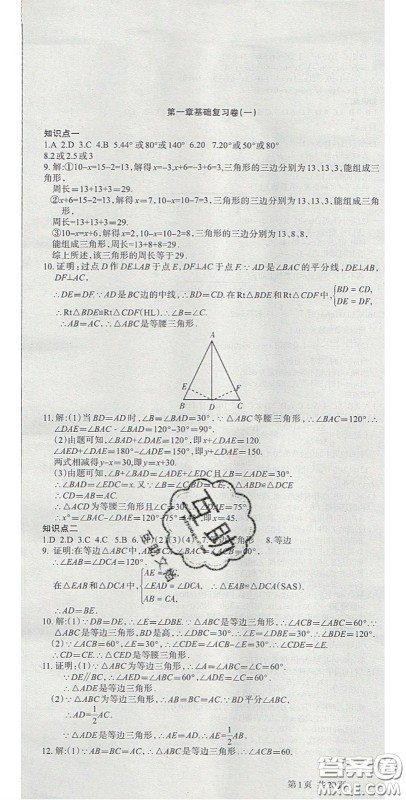 第一章基础复习卷(一)
知识点一
1.A 2.D 3.C 4.B 5.44°或80°或140° 6.20 7.20°或50°或80°
8.2或2.5或3
9.解:①10-x=15-2=13,解得x=-3,x+6=-3+6=3,三角形的三边分别为13、13、3,能组成三角形,
周长=13+13+3=29.
②x+6=15-2=13,解得x=7,10-x=10-7=3,三角形的三边分别为13、13、3,能组成三角形,
周长=13+13+3=29.
③10-x=x+6,解得x=2,10-x=10-2=8,三角形的三边分别为13、8、8,
能组成三角形,周长=13+8+8=29.
综上所述,该三角形的周长等于29.
10.证明:过点D作DE⊥AB于点E,DF⊥AC于点F.∵AD是∠BAC的平分线,DE⊥AB,
DF⊥AC,
∴DE=DF.∵AD是BC边的中线,∴BD=CD.在Rt△BDE和Rt△CDF中,{BD=CD,
DE=DF,
∴Rt△BDE≌Rt△CDF(HL).∴∠B=∠C.
∴AB=AC,∴△ABC是等腰三角形.
A
E F
B D C
11.解:(1)当BD=AD时,∠B=∠BAD=30°,∵△ABC等腰三角形,∴∠BAC=120°.
∴∠DAC=∠BAC-∠BAD=120°-30°=90°.
(2)由题可知,∠BAD+∠DAE=120°,即x+∠DAE=120.
∠AED+∠DAE=180°-∠ADE=150°,即y+∠DAE=150.
两式相减得y-x=30,即y=x+30.
(3)由题可知,∠B+∠BAD=∠ADE+∠EDC且∠B=∠ADE=30°,
∴∠BAD=∠EDC=x.又∵∠B=∠C
∴CD=AB=AC.
∴△ADC为等腰三角形且∠C=30° ∠DAE=75°
∴x°=∠BAC-∠DAE=120°-75° 即x=45.
知识点二
1.D 2.D 3.C 4.C 5.B 6. (2)(3)(4) 7. 8.等边
9.证明:在等边△ABC中,AB=
∴∠EAB=∠DCA=120°.
在△EAB和△DCA中,{AE=
∠EAB=∠DCA,∴△EAB≌△DCA(SAS).
AB=
∴AD=BE.
10.解:(1)∵DB=DE,∴∠E=∠DBE.∵△ABC是等边三角形,∴∠ACB=∠ABC=60°.
∵△ABC是等边三角形,BD是高,∴∠DBC=30°.∴∠E=30°.∵∠ACB=60°,∴∠CDE=30°=∠E.
∴CD=CE.∴△CDE是等腰三角形.
11.证明:(1)∵△ABC为等边三角形,∴∠A=∠ABC=∠C=60°.
∵DE∥BC,∴∠AED=∠ABC=60°,∠ADE=∠C=60°.
∴△ADE是等边三角形.
(2)∵△ABC为等边三角形,∴AB=BC=AC.∵BD平分∠ABC,
∴AD=1/2AC.
∵△ADE是等边三角形,∴AE=AD.∴AE=1/2AB.
12.解:(1)∵AB=BC=AC,∴△ABC是等边三角形,∴∠ACB=60.
互助
作业文档
第1页
答案圈
MXQE.COM